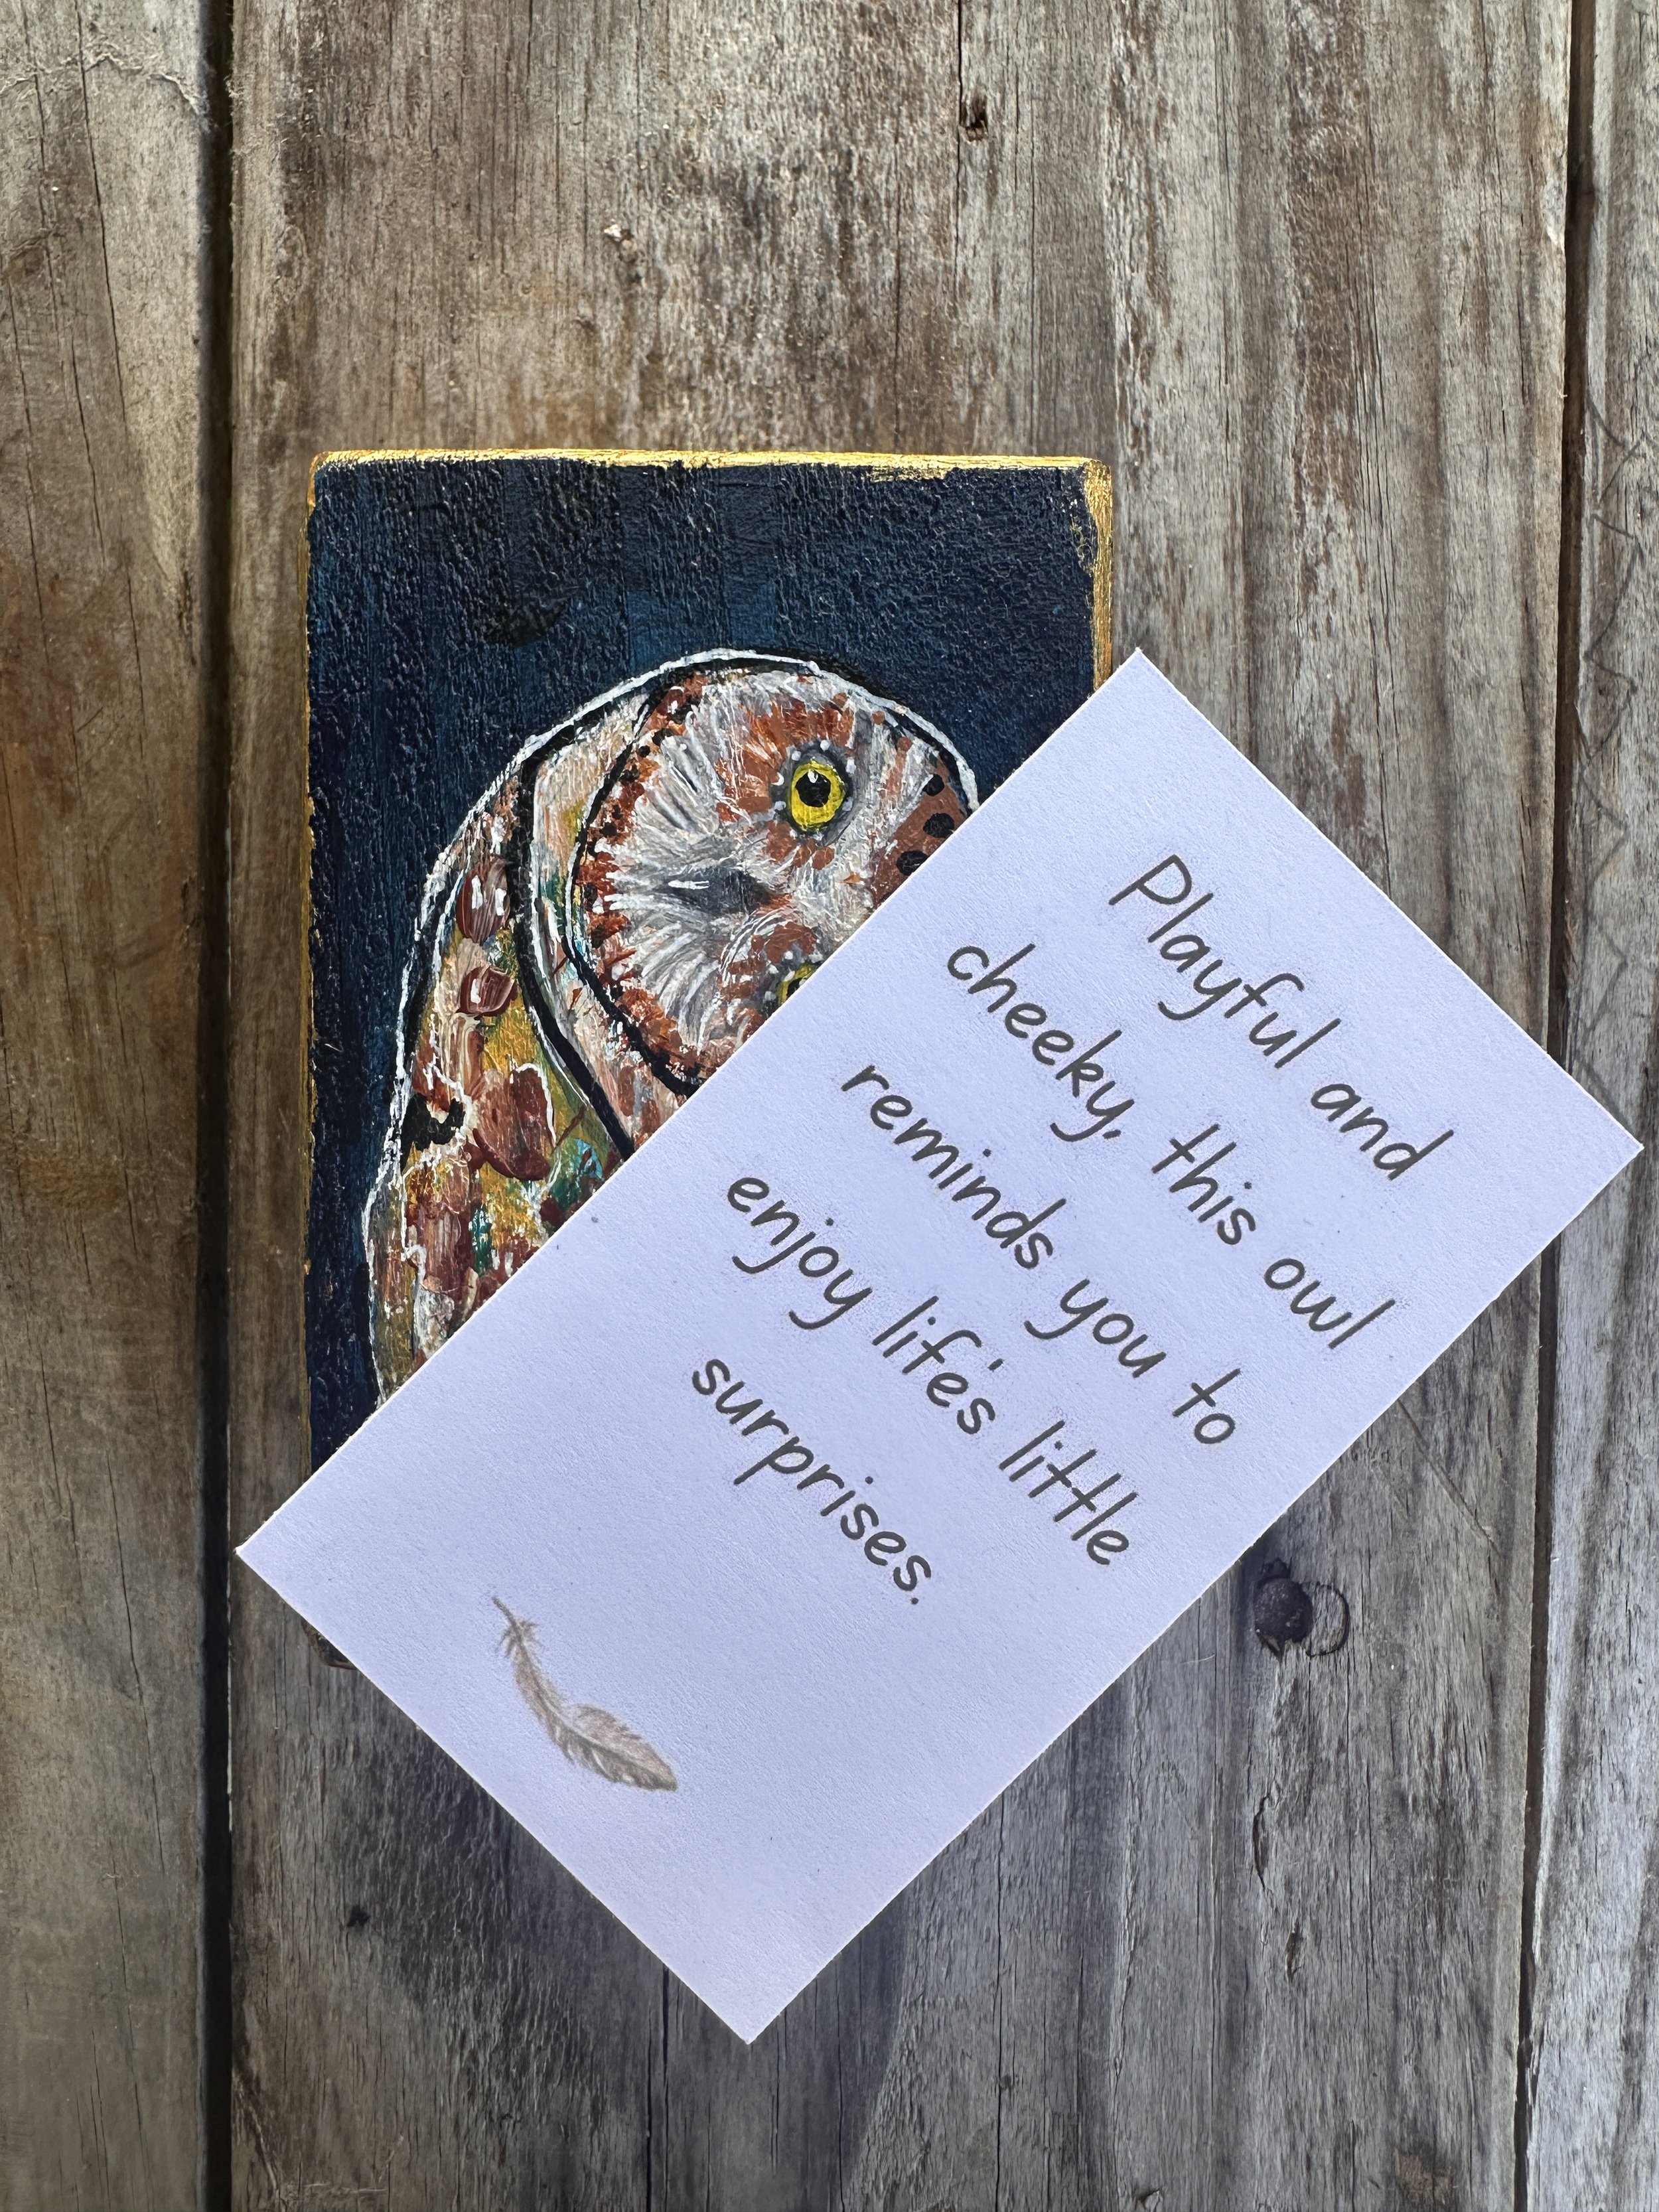 Playful and
cheeky, this owl
reminds you to
enjoy life's little
surprises.